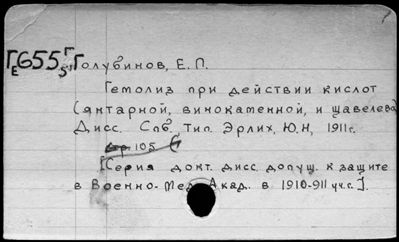 ГЕ655 Г5 Голубинов, Е. П.
Гемолиз при действии кислот
(янтарной, винокаменной, и щавелева
Дисс. Спб. Тип. Эрлих, Ю.Н, 1911г.
стр. 105 (
[Серия докт. дисс. допущ. к защите
в Военно-Мед. Акад. в 1910-911 уч.г.].